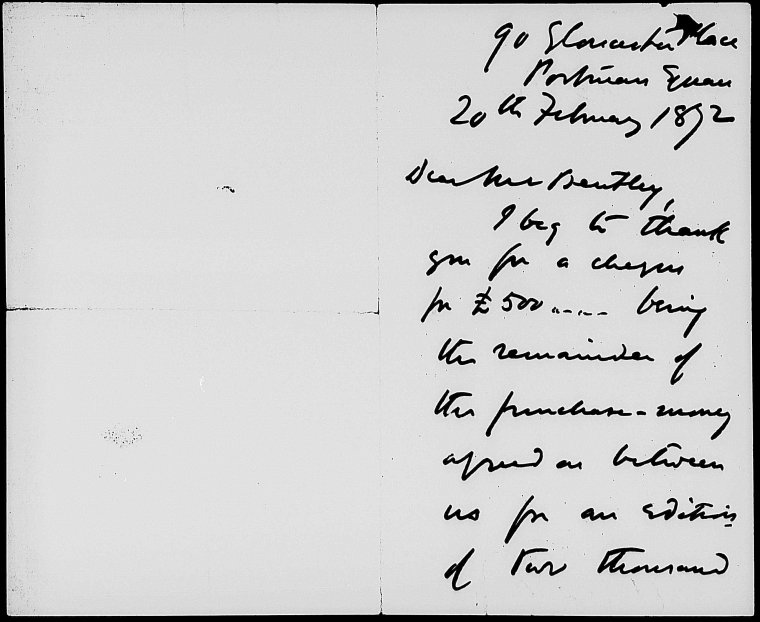 90 Gloucester Place
Portman Square
20th February 1872
Dear Mr Bentley,
I beg to thank
you for a cheque
for £500..... being
the remainder of
the purchase-money
agreed on between
us for an edition
of two thousand